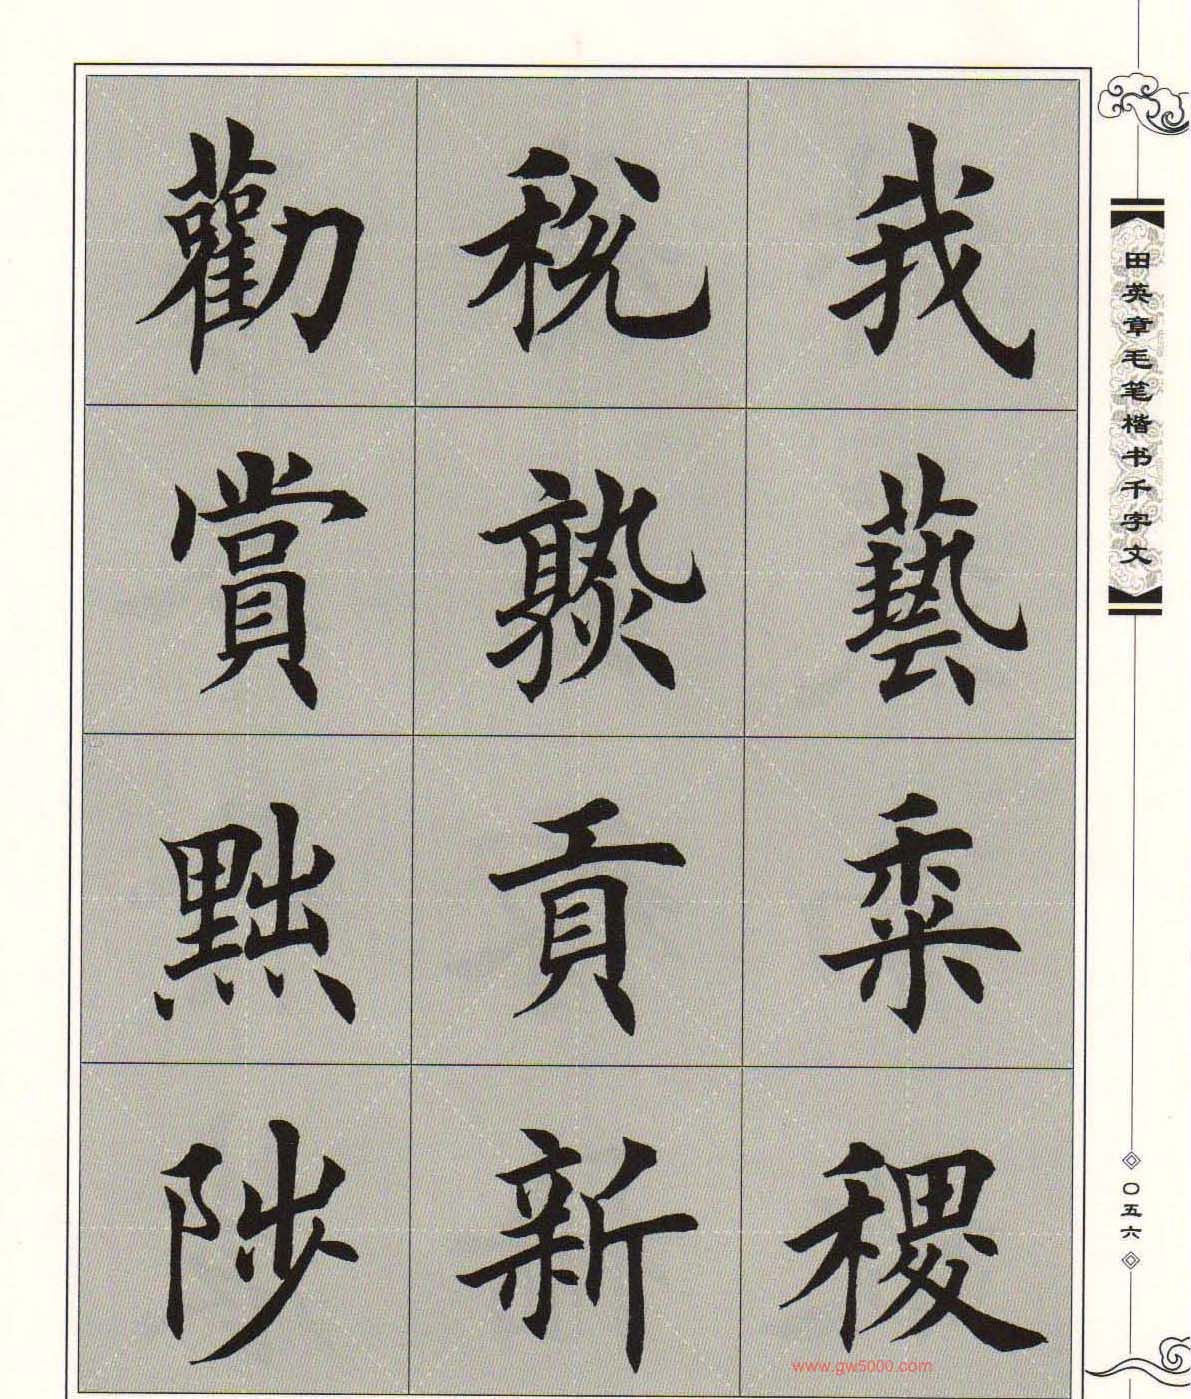 我藝黍稷
税熟貢新
勸賞黜陟
田英章毛笔楷书千字文
〇五六
www.gw5000.com